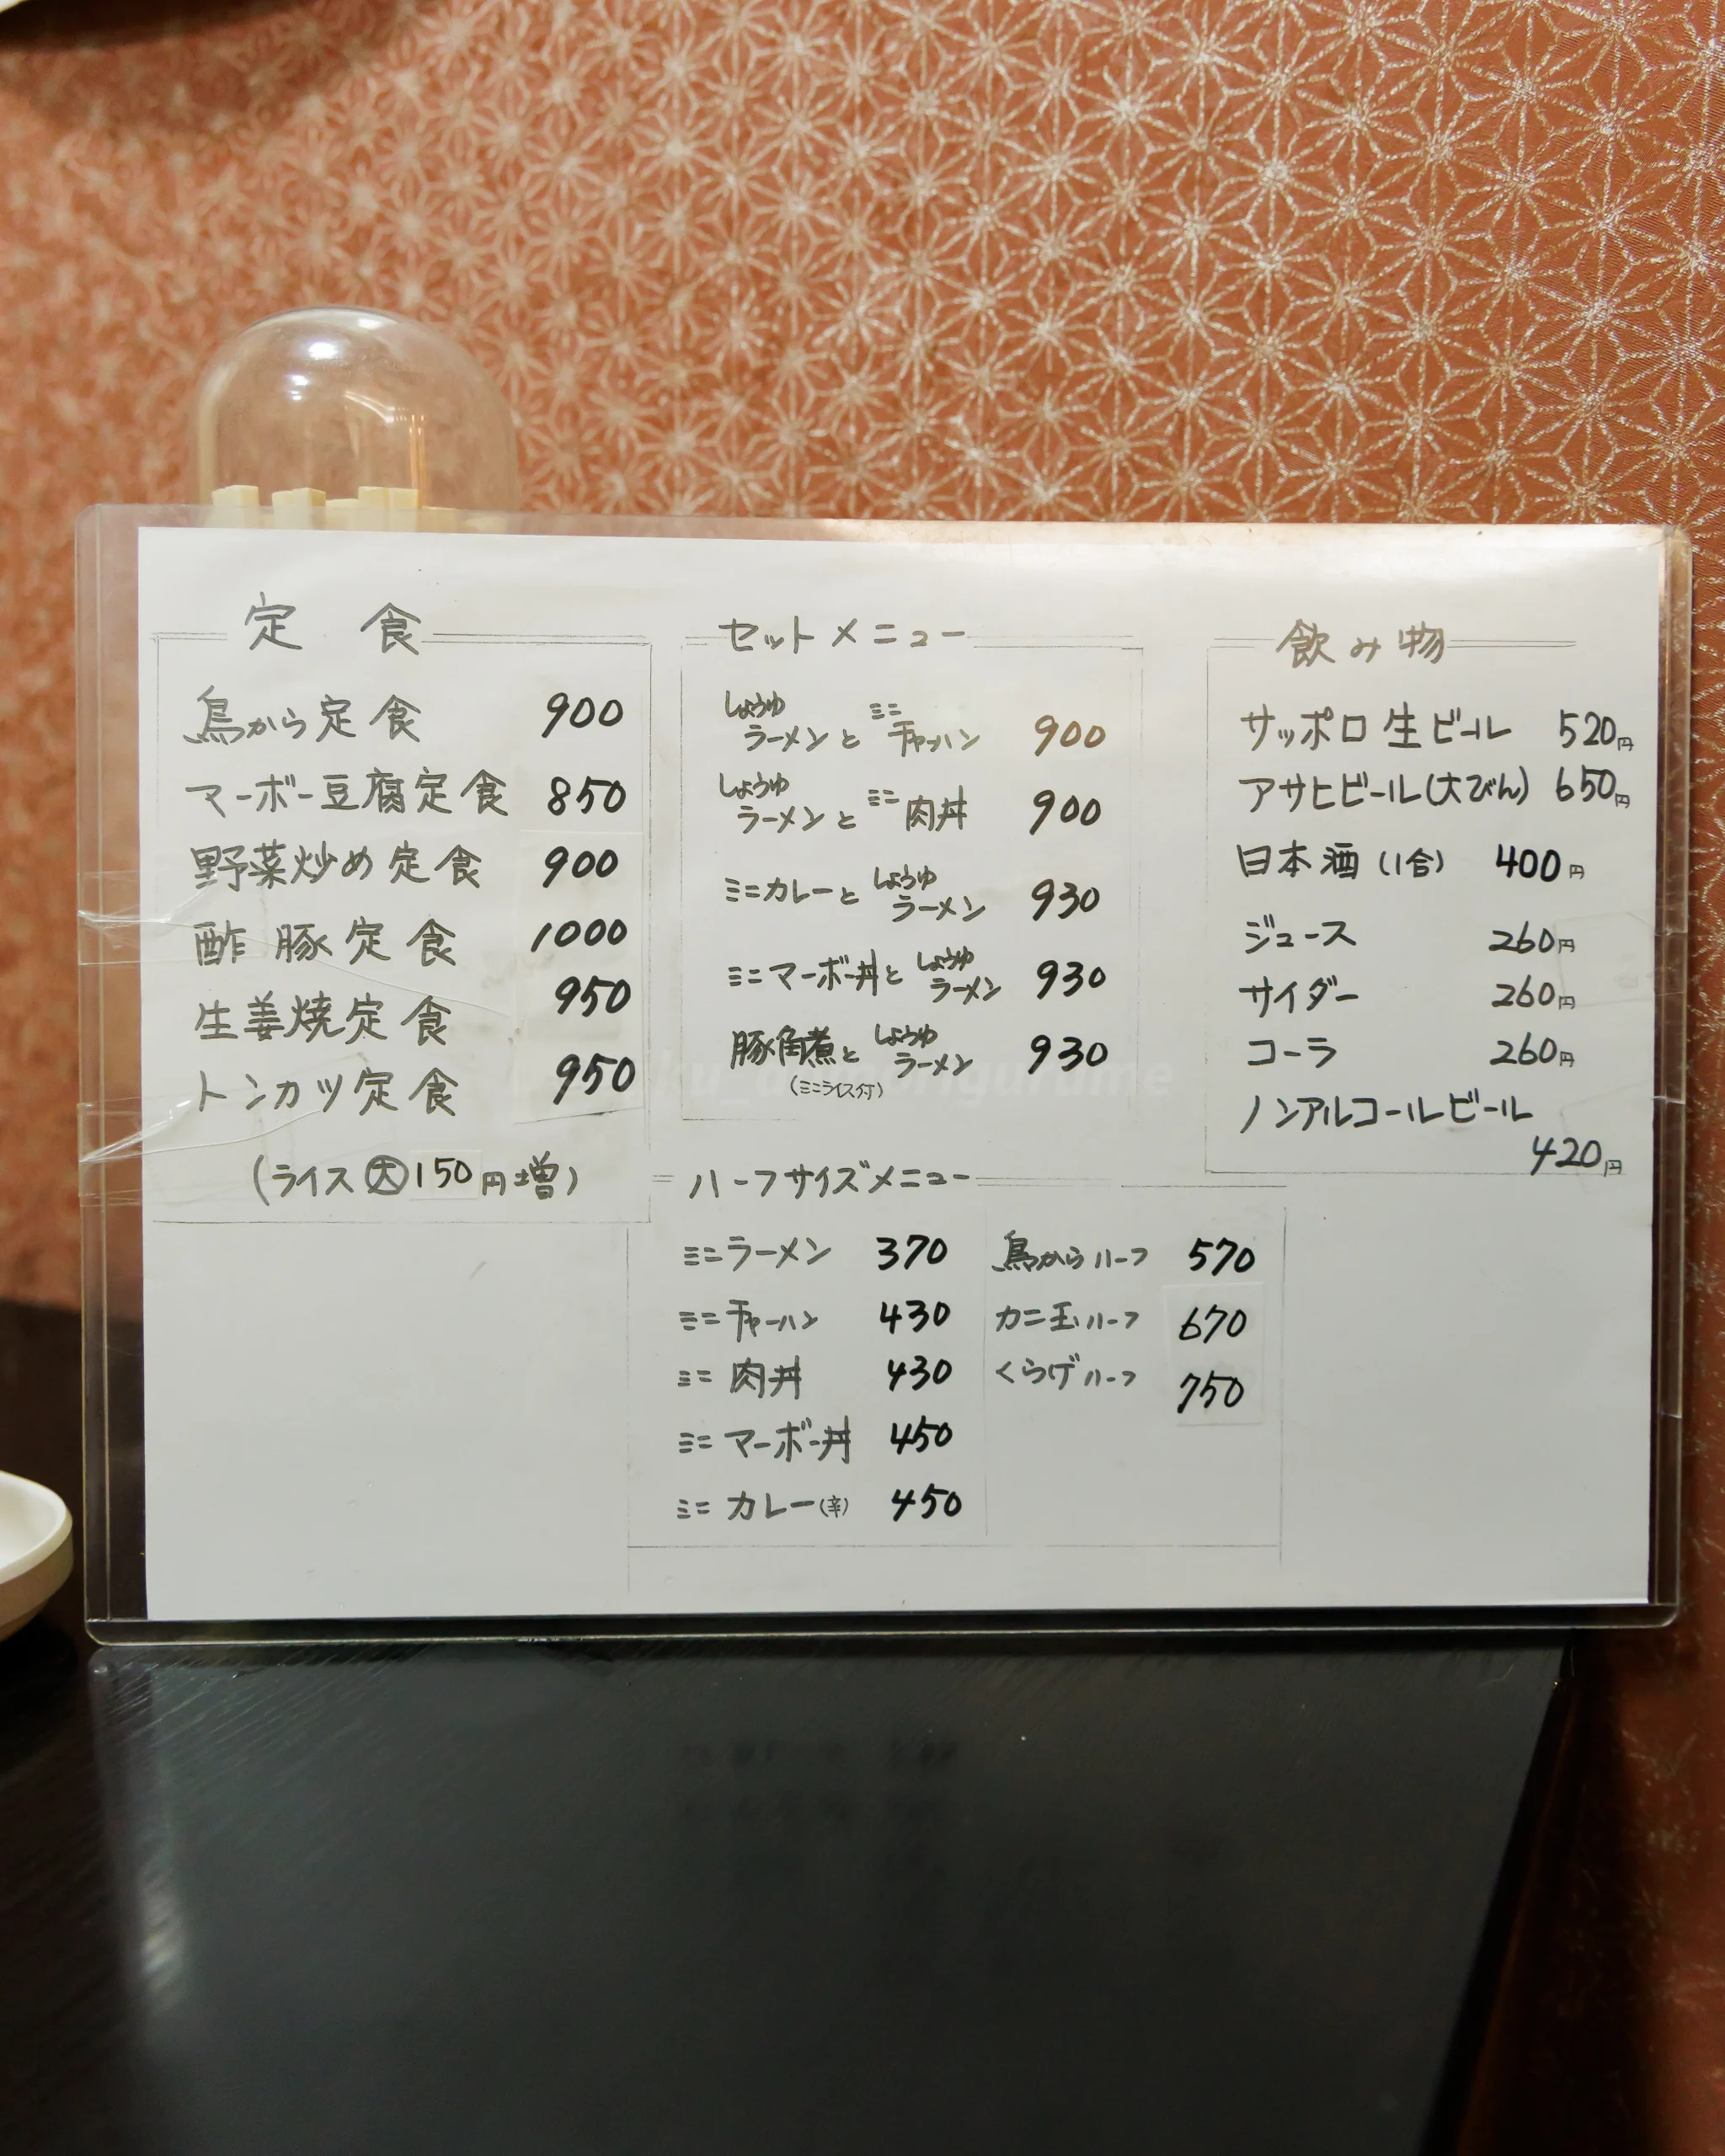 定食
鳥から定食 900
マーボー豆腐定食 850
野菜炒め定食 900
酢豚定食 1000
生姜焼定食 950
トンカツ定食 950
(ライス大150円増)
セットメニュー
しょうゆラーメンとミニチャーハン 900
しょうゆラーメンとミニ肉丼 900
ミニカレーとしょうゆラーメン 930
ミニマーボー丼としょうゆラーメン 930
豚角煮としょうゆラーメン 930
(ミニライス付)
飲み物
サッポロ生ビール 520円
アサヒビール(大びん) 650円
日本酒(1合) 400円
ジュース 260円
サイダー 260円
コーラ 260円
ノンアルコールビール
420円
ハーフサイズメニュー
ミニラーメン 370
ミニチャーハン 430
ミニ肉丼 430
ミニマーボー丼 450
ミニカレー(辛) 450
鳥からハーフ 570
カニ玉ハーフ 670
くらげハーフ 750